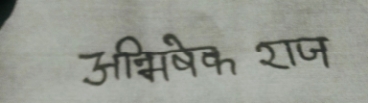 अभिषेक राज